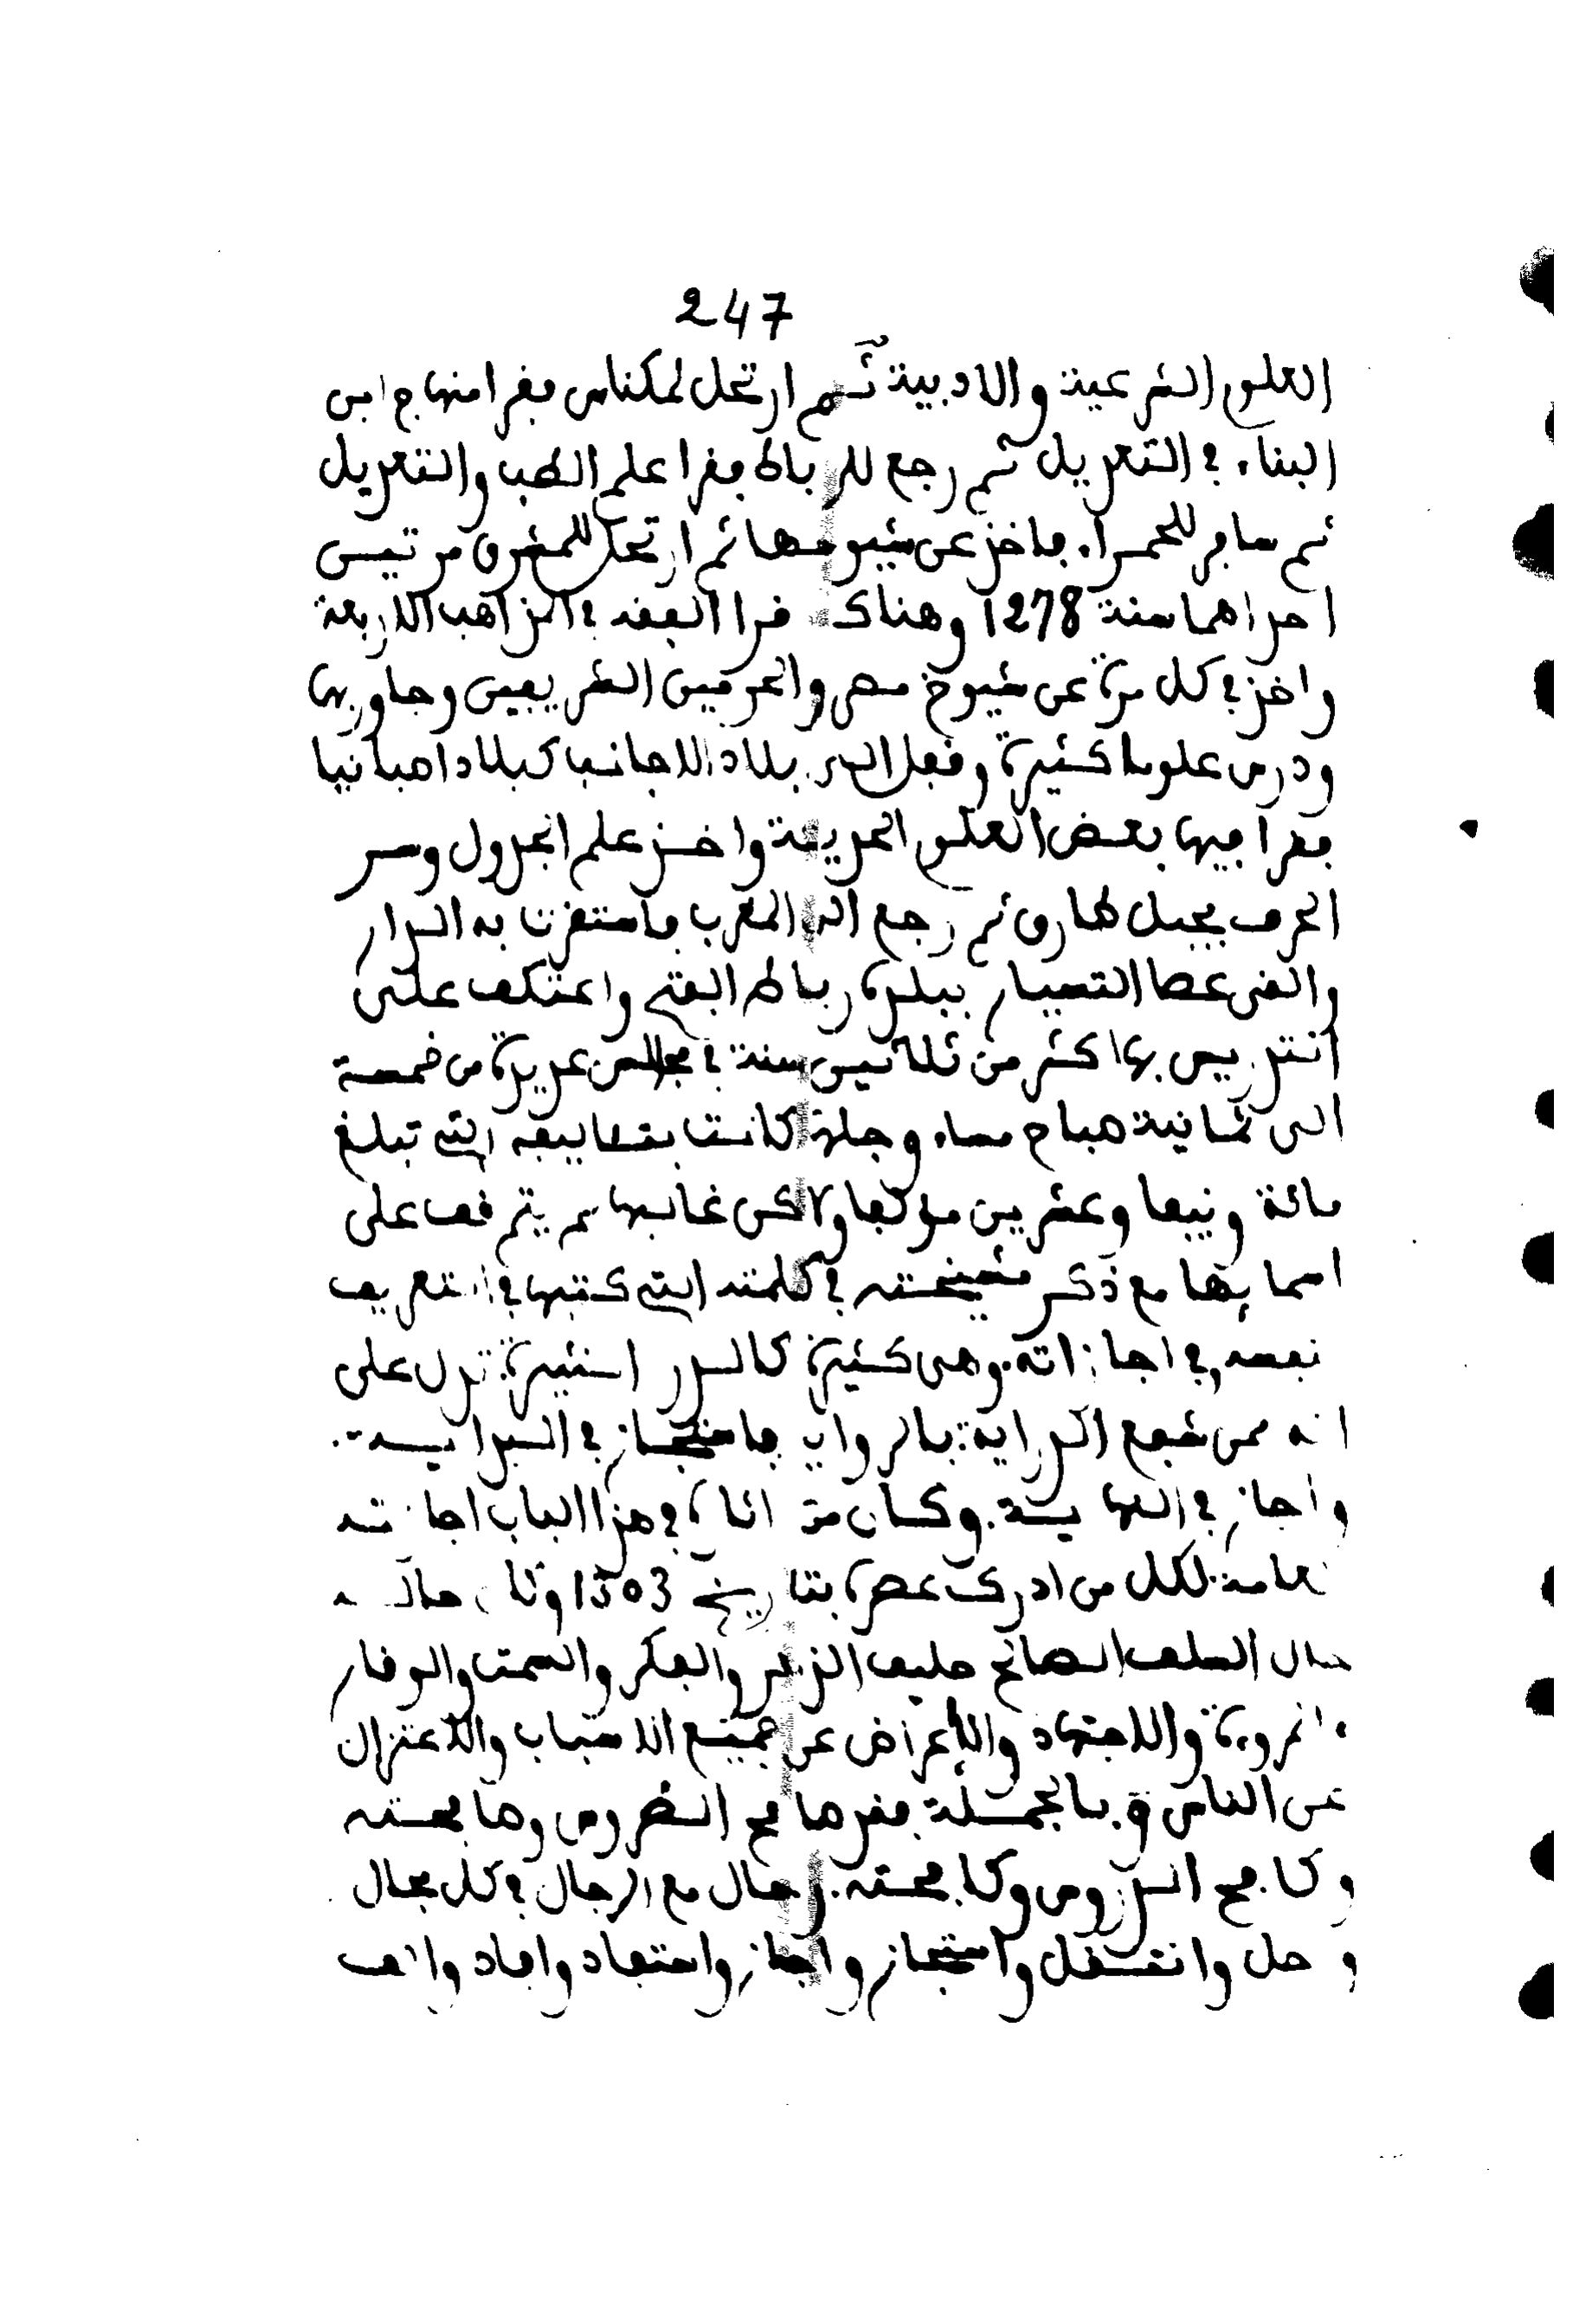 247
العلوم الشرعية والادبية ثم ارتحل لمكناس فقرا منهاج ابن
البناء في التعديل ثم رجع للرباط فقرا علم الطب والتعديل
ثم سافر للحمراء فاخذ عن شيوخها ثم ارتحل للمشرق مرتين
احداهما سنة 1278 وهناك قرا الفقه في المذاهب الاربعة
واخذ في كل مرة عن شيوخ مصر والحرمين الشريفين وجاور بها
ودرس علوما كثيرة وقبل الى بلاد الاجانب كبلاد اصبانيا
فقرا فيها بعض العلوم الحديثة واخذ علم الجدول وسر
الحرف بجبل طارق ثم رجع الى المغرب فاستقرت به الدار
والقى عصا التسيار ببلده رباط الفتح واعتكف على
التدريس بها اكثر من ثلاثين سنة في مجالس عديدة من خمسة
الى ثمانية صباح مساء وجلة كانت بتئاليفه التي تبلغ
مائة ونيفا وعشرين مؤلفا ولاكن غالبها لم يتم قف على
اسمائها مع ذكر مشيخته في كلمته التي كتبها في التعريف
بنفسه وفي اجازاته وهي كثيرة كالدرر النثيرة تدل على
انه ممن شفع الدراية بالرواية فاستجاز في البداية
واجاز في النهاية. وكان من اثاره في هذا الباب اجازته
العامة لكل من ادرك عصره بتاريخ 1303 وكان حاله
حال السلف الصالح حليف الذكر والفكر والسمت والوقار
والمروءة والاجتهاد والاعراض عن جميع الاسباب والاعتزال
عن الناس وبالجملة فقد صافح الضروس وصافحته
وكافح الدروس وكافحته. وجال مع الرجال في كل مجال
وحل وانتقل واستجاز واجاز واستفاد وافاد والف